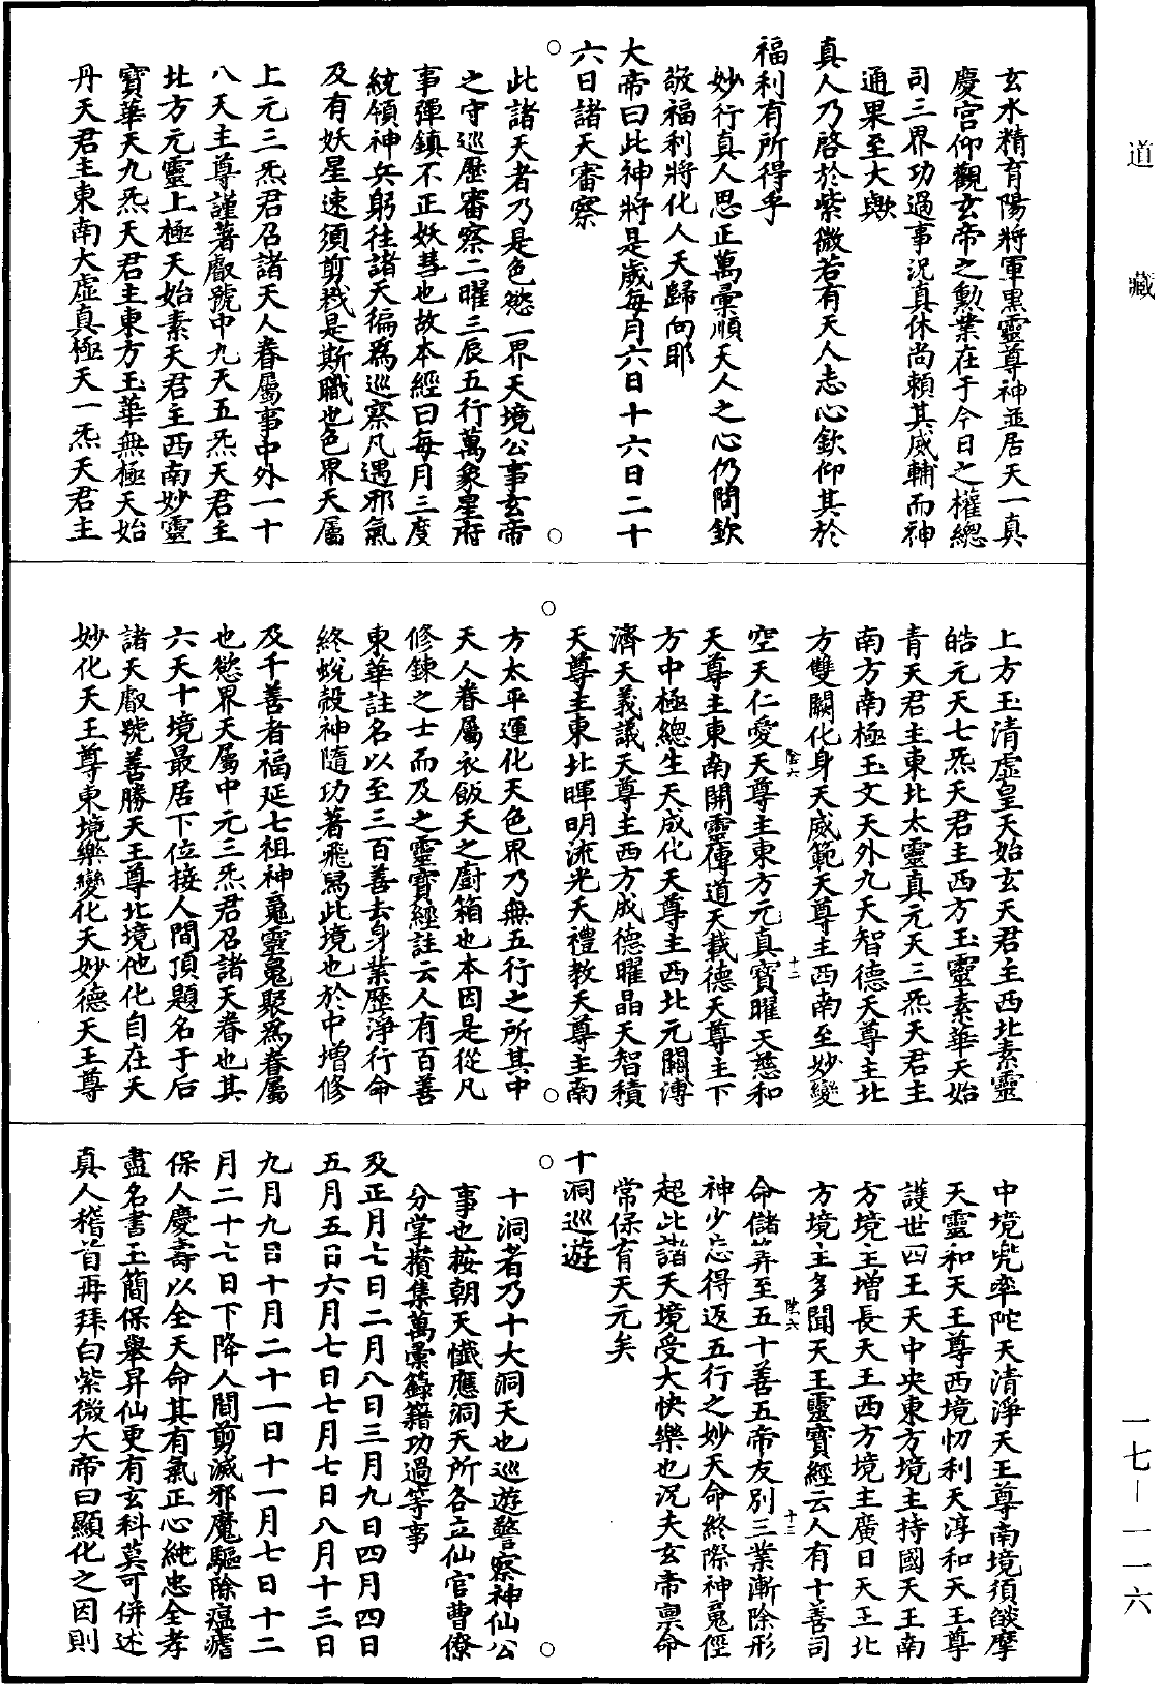 道藏
玄水精育陽將軍黑靈尊神並居天一真
慶宮仰觀玄帝之勳業在于今日之權總
司三界功過事況真休尚賴其威輔而神
通果至大歟
真人乃啓於紫微若有天人志心欽仰其於
福利有所得乎
妙行真人思正萬彙順天人之心仍問欽
敬福利將化人天歸向耶
大帝曰此神將是歲每月六日十六日二十
六日諸天審察
此諸天者乃是色慾一界天境公事玄帝
之守巡歷審察二曜三辰五行萬象星府
事彈鎮不正妖彗也故本經曰每月三度
統領神兵躬往諸天徧爲巡察凡遇邪氣
及有妖星速須剪戮是斯職也色界天屬
上元三炁君召諸天人眷屬事中外一十
八天主尊謹著叡號中九天五炁天君主
北方元靈上極天始素天君主西南妙靈
寶華天九炁天君主東方玉華無極天始
丹天君主東南大虛真極天一炁天君主
上方玉清虛皇天始玄天君主西北素靈
皓元天七炁天君主西方玉靈素華天始
青天君主東北太靈真元天三炁天君主
南方南極玉文天外九天智德天尊主北
方雙闕化身天威範天尊主西南至妙變
空天仁愛天尊主東方元真寶曜天慈和
天尊主東南開靈傳道天載德天尊主下
方中極總生天成化天尊主西北元關溥
濟天義議天尊主西方成德曜晶天智積
天尊主東北暉明流光天禮教天尊主南
方太平運化天色界乃無五行之所其中
天人眷屬衣飯天之廚箱也本因是從凡
修鍊之士而及之靈寶經註云人有百善
東華註名以至三百善去身業歷淨行命
終蛻殼神隨功著飛舄此境也於中增修
及千善者福延七祖神䰟靈䰟聚爲眷屬
也慾界天屬中元三炁君召諸天眷也其
六天十境最居下位接人間頂題名于后
諸天叡號善勝天王尊北境他化自在天
妙化天王尊東境樂變化天妙德天王尊
中境兜率陀天清淨天王尊南境須燄摩
天靈和天王尊西境忉利天淳和天王尊
護世四王天中央東方境主持國天王南
方境王增長天王西方境主廣目天王北
方境主多聞天王靈寶經云人有十善司
命儲筭至五十善五帝友別三業漸除形
神少忘得返五行之妙天命終際神䰟徑
超此諸天境受大快樂也況夫玄帝禀命
常保育天元矣
十洞巡遊
十洞者乃十大洞天也巡遊警察神仙公
事也按朝天懺應洞天所各立仙官曹僚
分掌攢集萬彙錄籍功過等事
及正月七日二月八日三月九日四月四日
五月五日六月七日七月七日八月十三日
九月九日十月二十一日十一月七日十二
月二十七日下降人間剪滅邪魔驅除瘟㾮
保人慶壽以全天命其有氣正心純忠全孝
盡名書玉簡保舉昇仙更有玄科莫可併述
真人稽首再拜白紫微大帝曰顯化之因則
一七－一一六